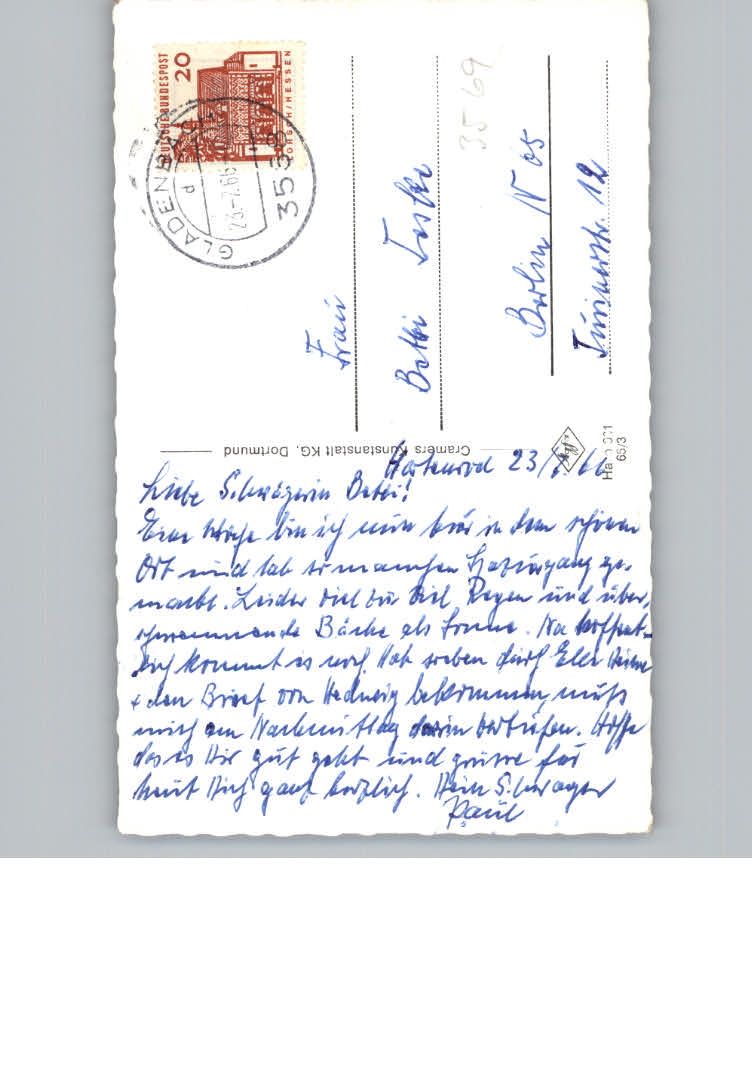 DEUTSCHE BUNDESPOST
20
LORSCH/HESSEN
GLADENBACH
d
23.-7.66
3538
3569
Frau
Betti Teske
Berlin N 65
12
Cramers Kunstanstalt KG, Dortmund
65/3
Hartenrod 23/7.66
Liebe Schwägerin Betti!
Eine Woche bin ich nun hier in dem schönen
Ort und hab so manchen Spaziergang ge-
macht. Leider viel zu viel Regen und über-
schwemmende Bäche als Sonne. Na hoffent-
lich kommt es noch. Hab soeben durch
den Brief von Hedwig bekommen, muß
mich am Nachmittag darin vertiefen. Hoffe
das es Dir gut geht und grüsse für
heut Dich ganz herzlich. Dein Schwager
Paul